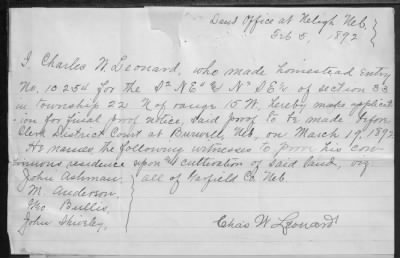 Land Office at Neligh Neb.
Feb 5, 1892
I Charles W. Leonard, who made homestead entry
No. 10254 for the S½ NE¼ & N½ SE¼ of section 33
in township 22 N of range 15 W. hereby make applicat
ion for final proof notice, said proof to be made before
Clerk District Court at Burwell, Neb, on March 19, 1892
He names the following witnesses to prove his con-
tinuous residence upon & cultivation of said land, viz
John Ashman,
M. Anderson, all of Garfield Co Neb.
Geo Bullis,
John Shively,
Chas W Leonard